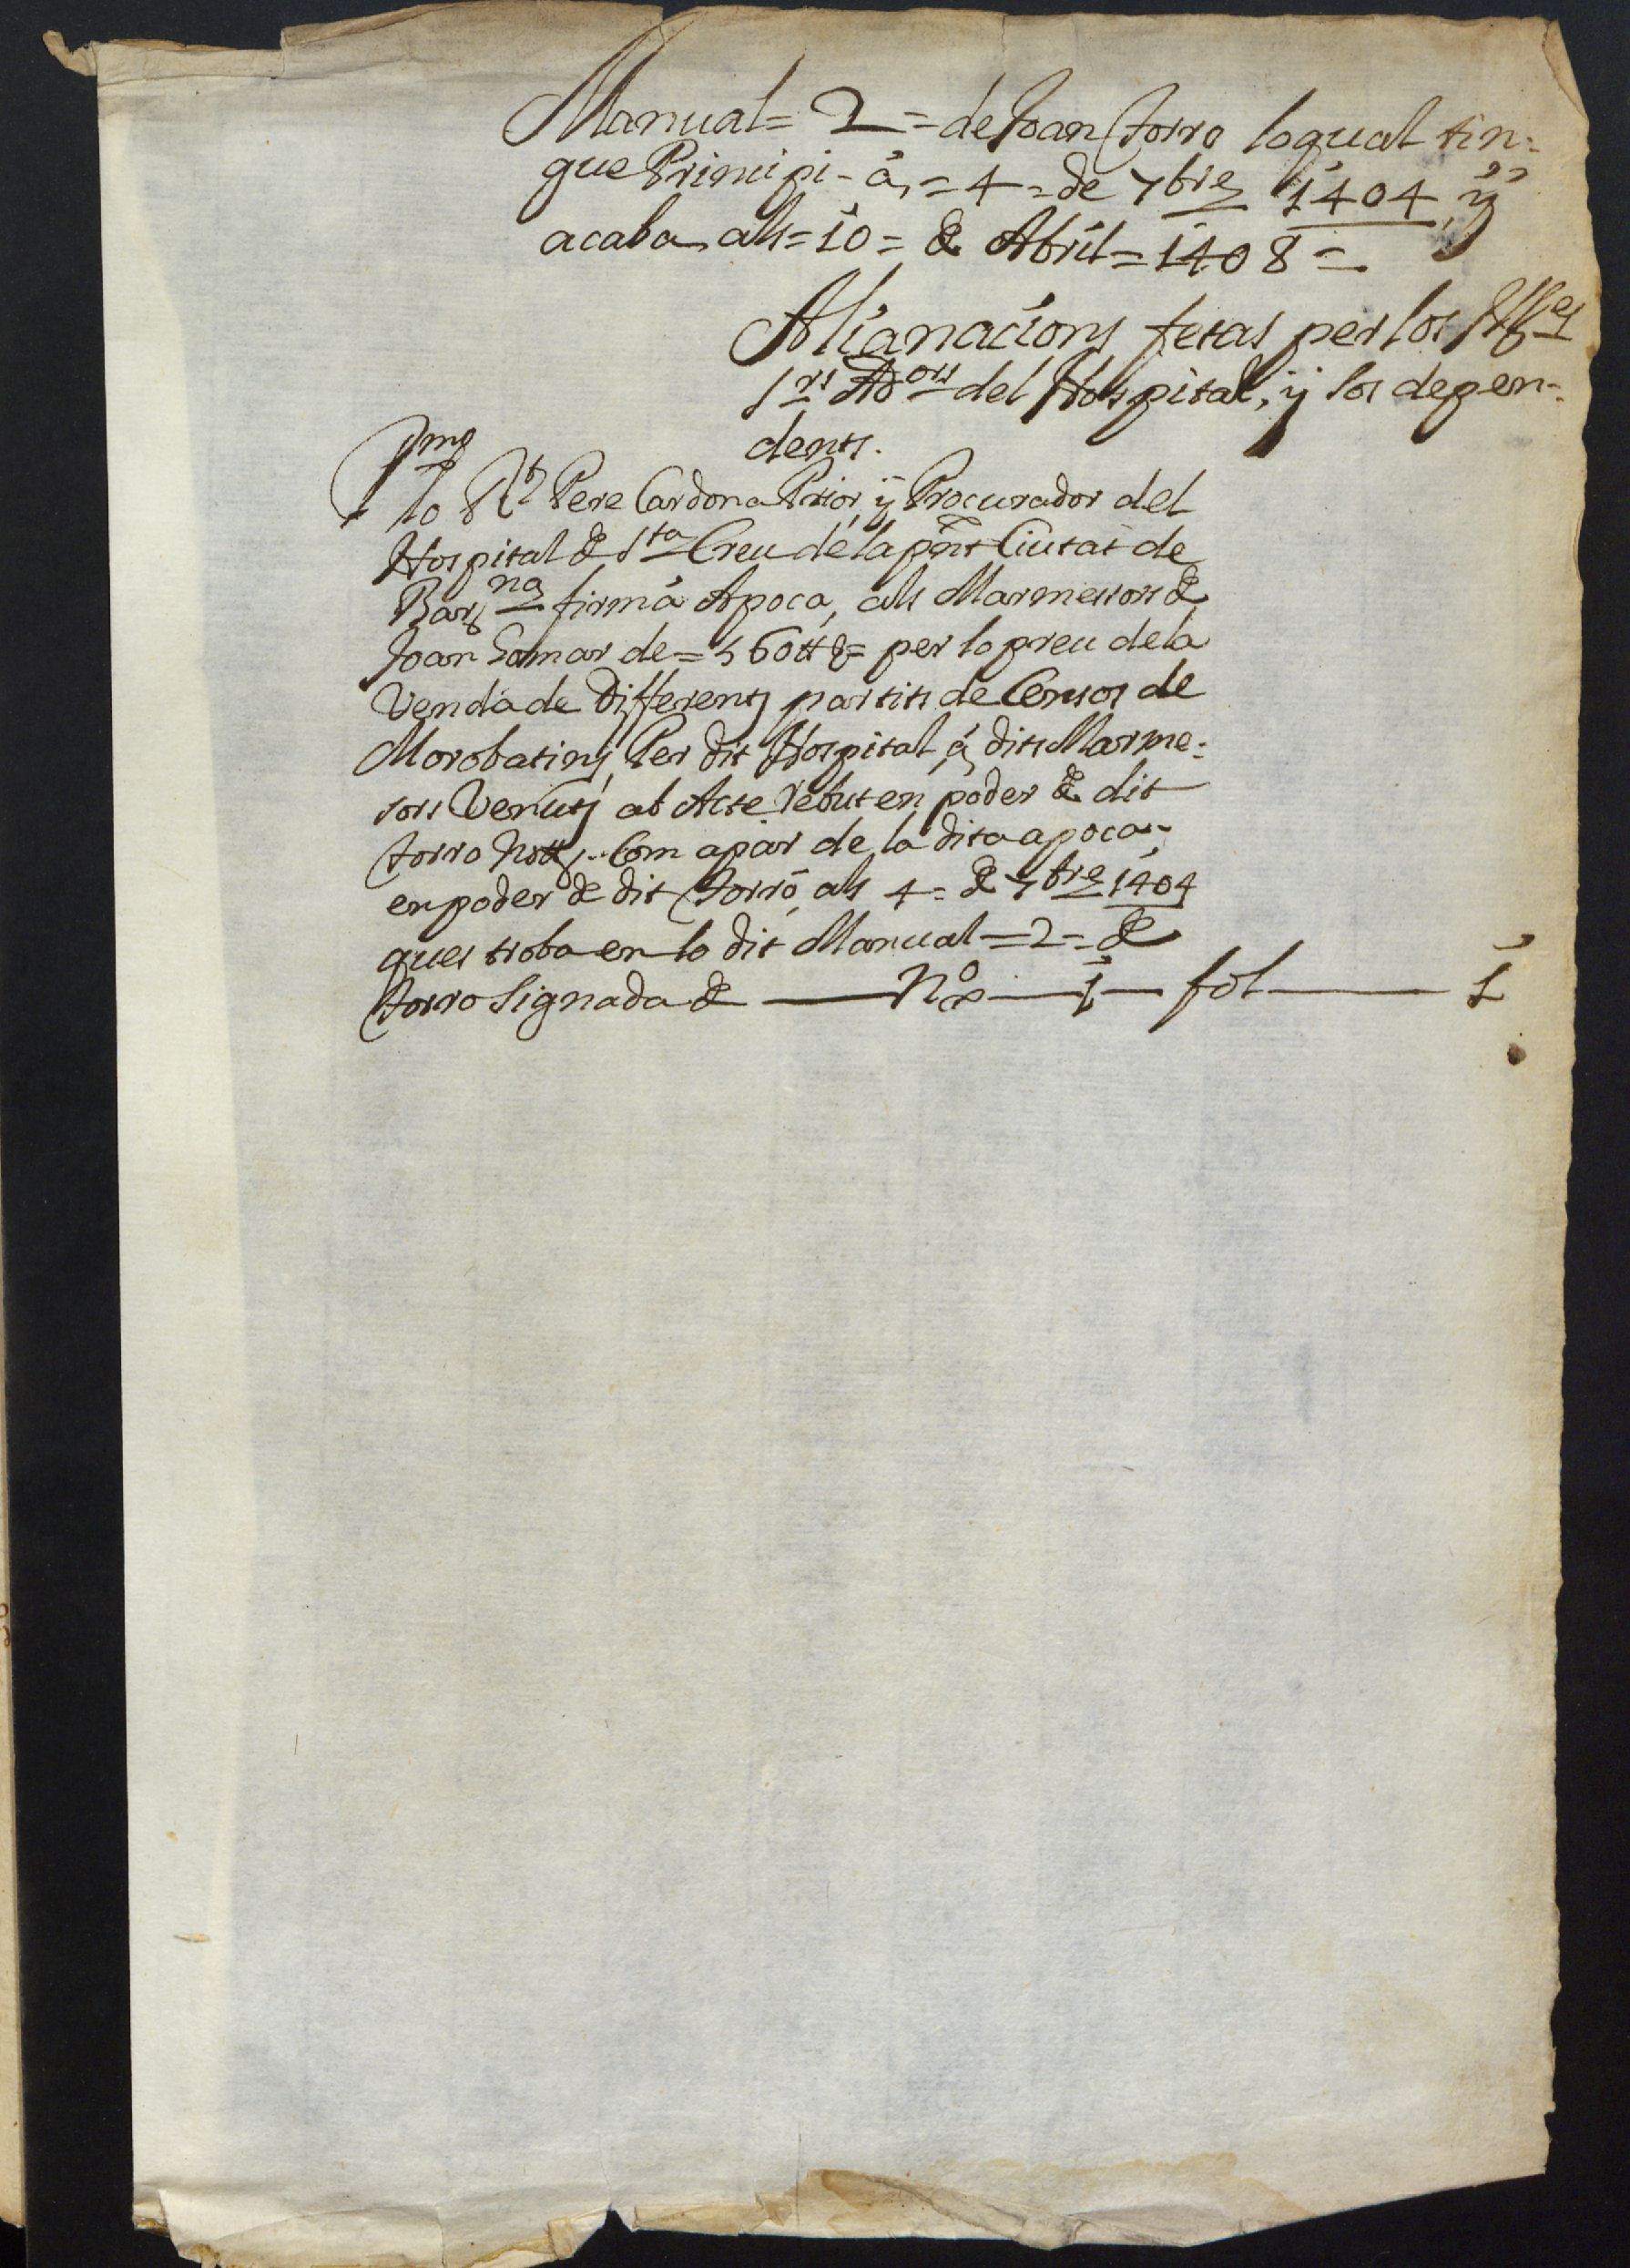 Manual = 2 = de Joan Torro loqual tin=
gue Principi - á, = 4 = de 7bre 1404, ÿ
acaba, als = 10 = de Abril = 1408 =
Alianacions fetas per los
Srs Adors del Hospital, ÿ los depen=
dents.
Pmo
lo Rt Pere Cardona Prior, ÿ Procurador del
Hospital de Sta Creu de la pnt Ciutat de
Barna firmá Apoca, als Marmessors de
Joan Somar de = 560 ₶ = per lo preu de la
Venda de Differents partits de Censos de
Morobatins, Per dit Hospital, á dits Marme=
sors Venuts ab Acte rebut en poder de dit
Torro Nott, Com apar de la dita apoca,
en poder de dit Torró, als 4 = de 7bre 1404
ques troba en lo dit Manual = 2 = de
Torro Signada de — No — 1 — fol — 1